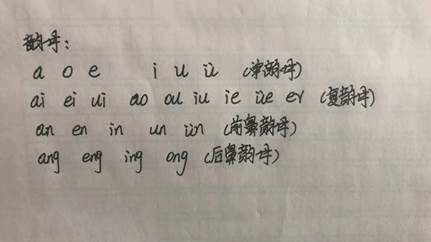 韵母:
a o e i u ü (单韵母)
ai ei ui ao ou iu ie üe er (复韵母)
an en in un ün (前鼻韵母)
ang eng ing ong (后鼻韵母)